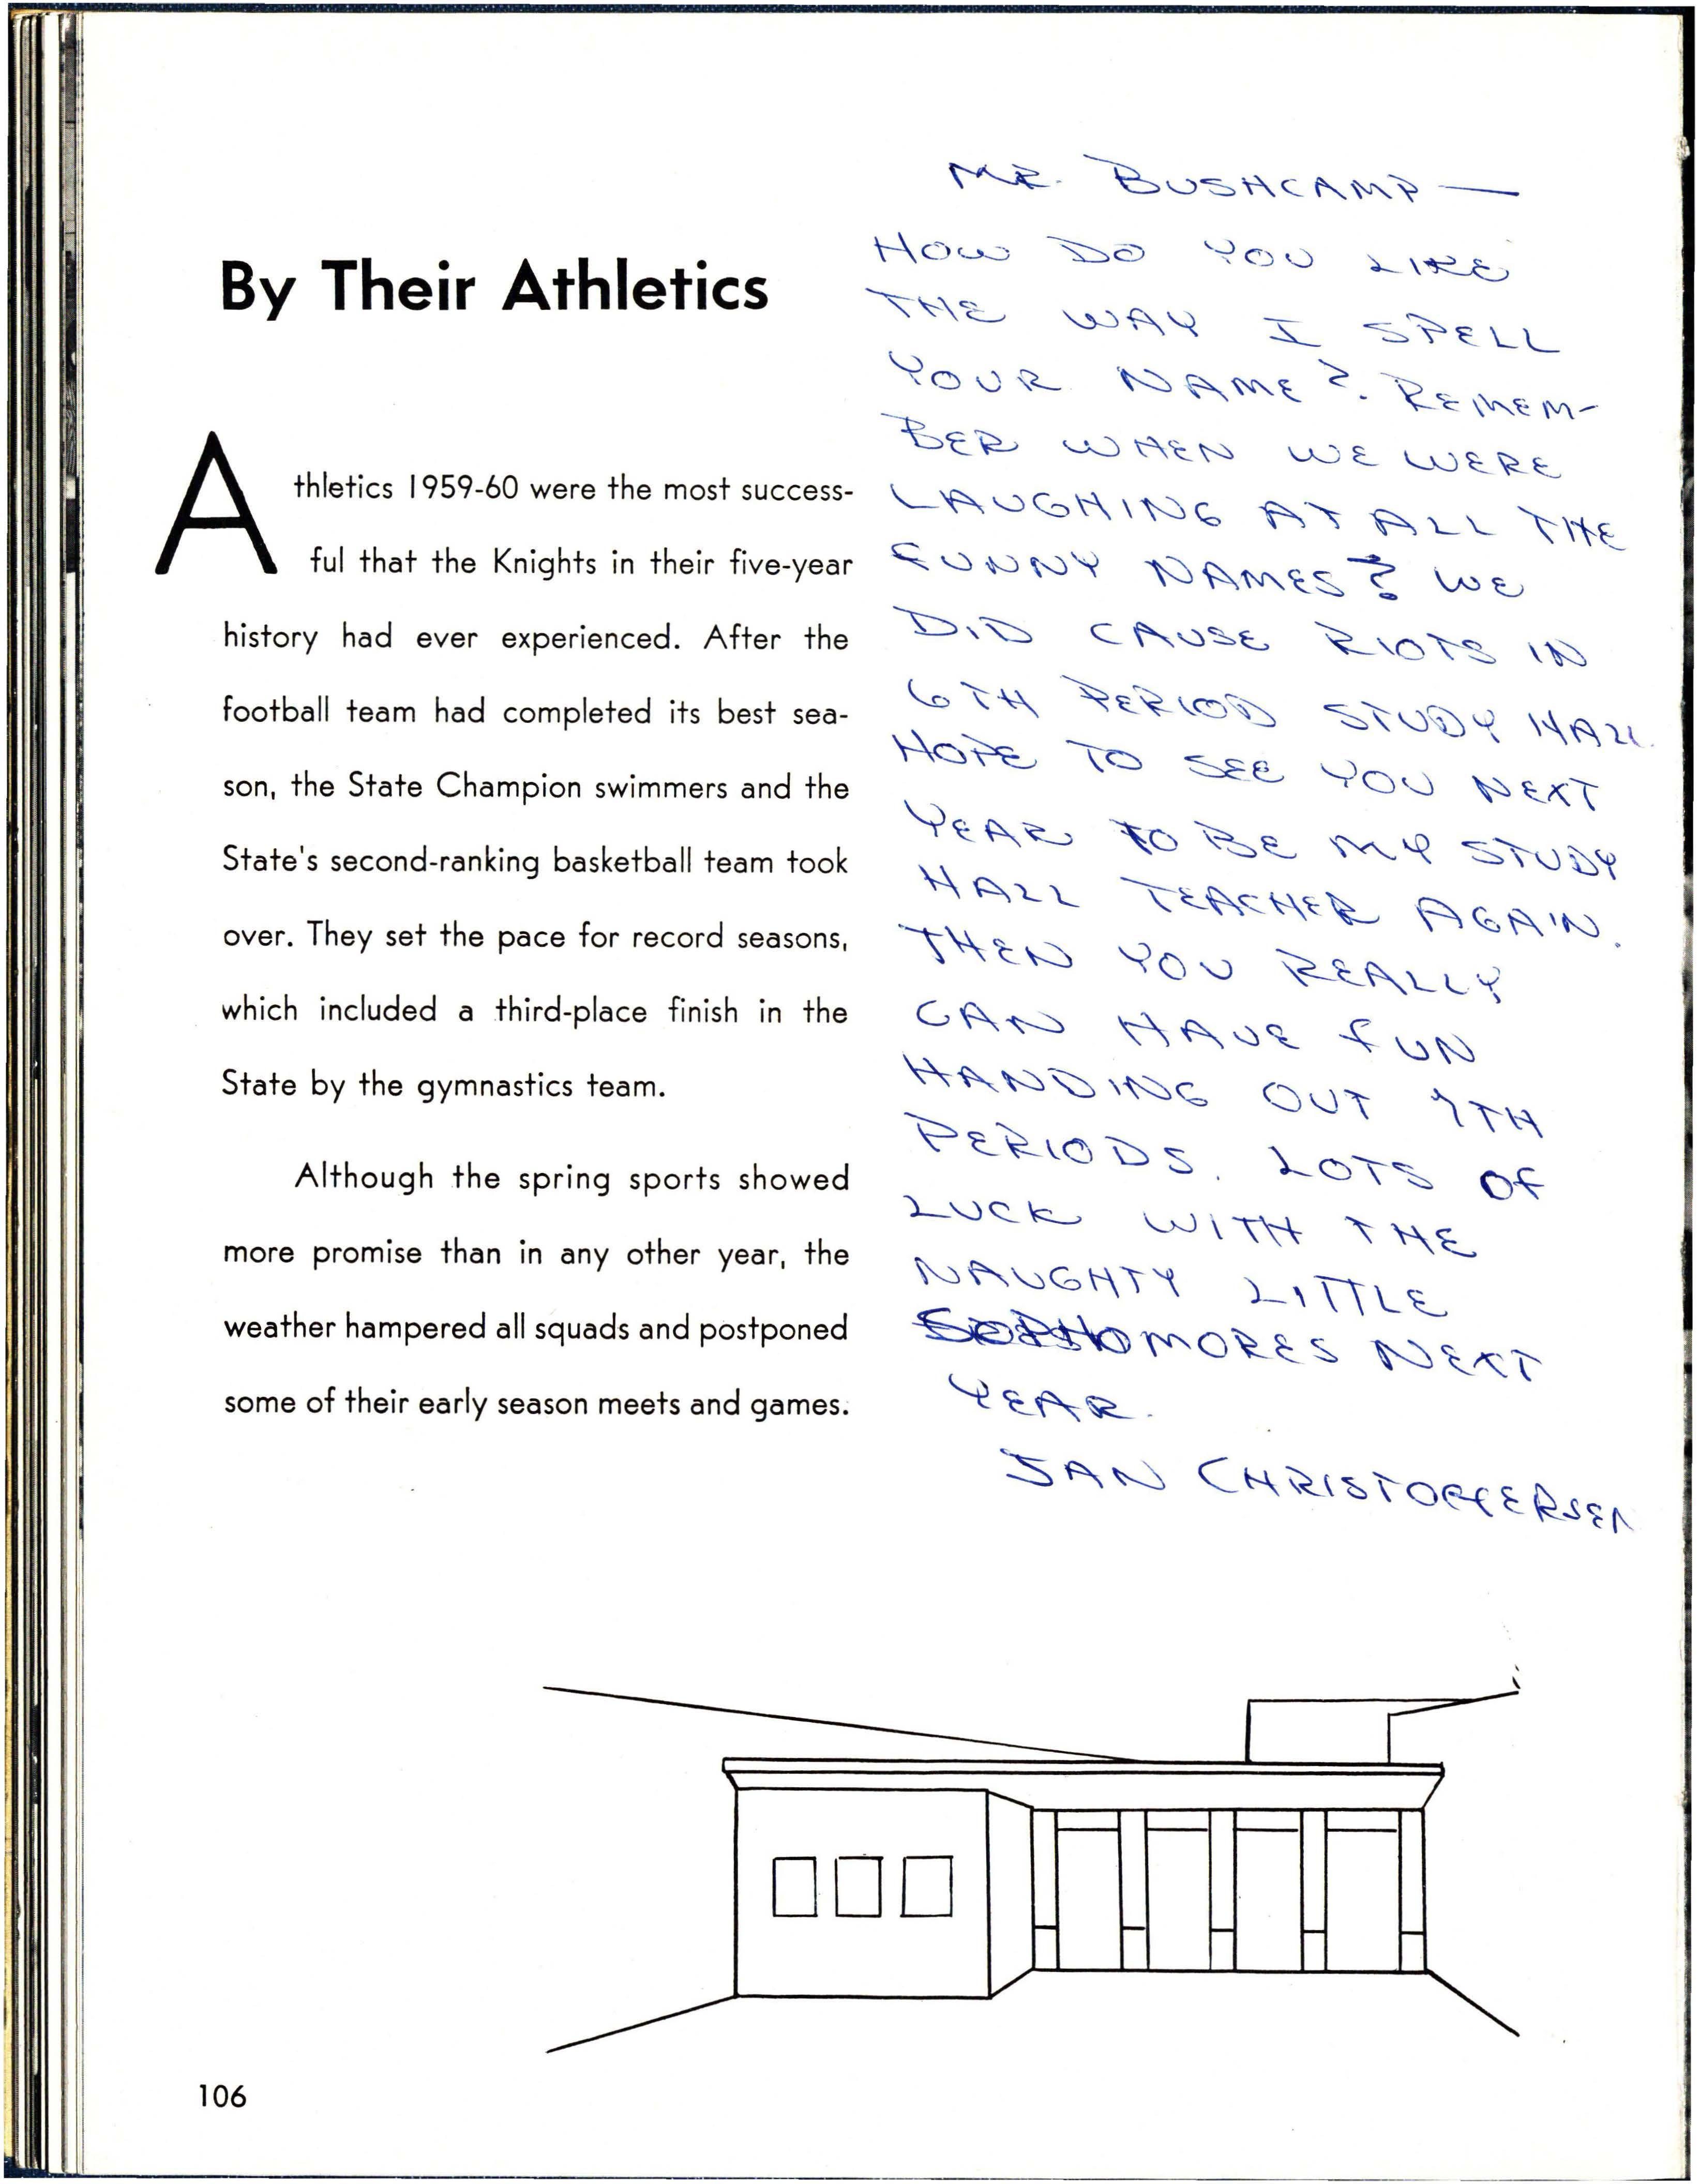 By Their Athletics
Athletics 1959-60 were the most success-
ful that the Knights in their five-year
history had ever experienced. After the
football team had completed its best sea-
son, the State Champion swimmers and the
State's second-ranking basketball team took
over. They set the pace for record seasons,
which included a third-place finish in the
State by the gymnastics team.
Although the spring sports showed
more promise than in any other year, the
weather hampered all squads and postponed
some of their early season meets and games.
MR. BUSHCAMP —
HOW DO YOU LIKE
THE WAY I SPELL
YOUR NAME?. REMEM-
BER WHEN WE WERE
LAUGHING AT ALL THE
FUNNY NAMES? WE
DID CAUSE RIOTS IN
6TH PERIOD STUDY HALL.
HOPE TO SEE YOU NEXT
YEAR TO BE MY STUDY
HALL TEACHER AGAIN.
THEN YOU REALLY
CAN HAVE FUN
HANDING OUT 7TH
PERIODS. LOTS OF
LUCK WITH THE
NAUGHTY LITTLE
SOPHOMORES NEXT
YEAR.
JAN CHRISTOFFERSEN
106